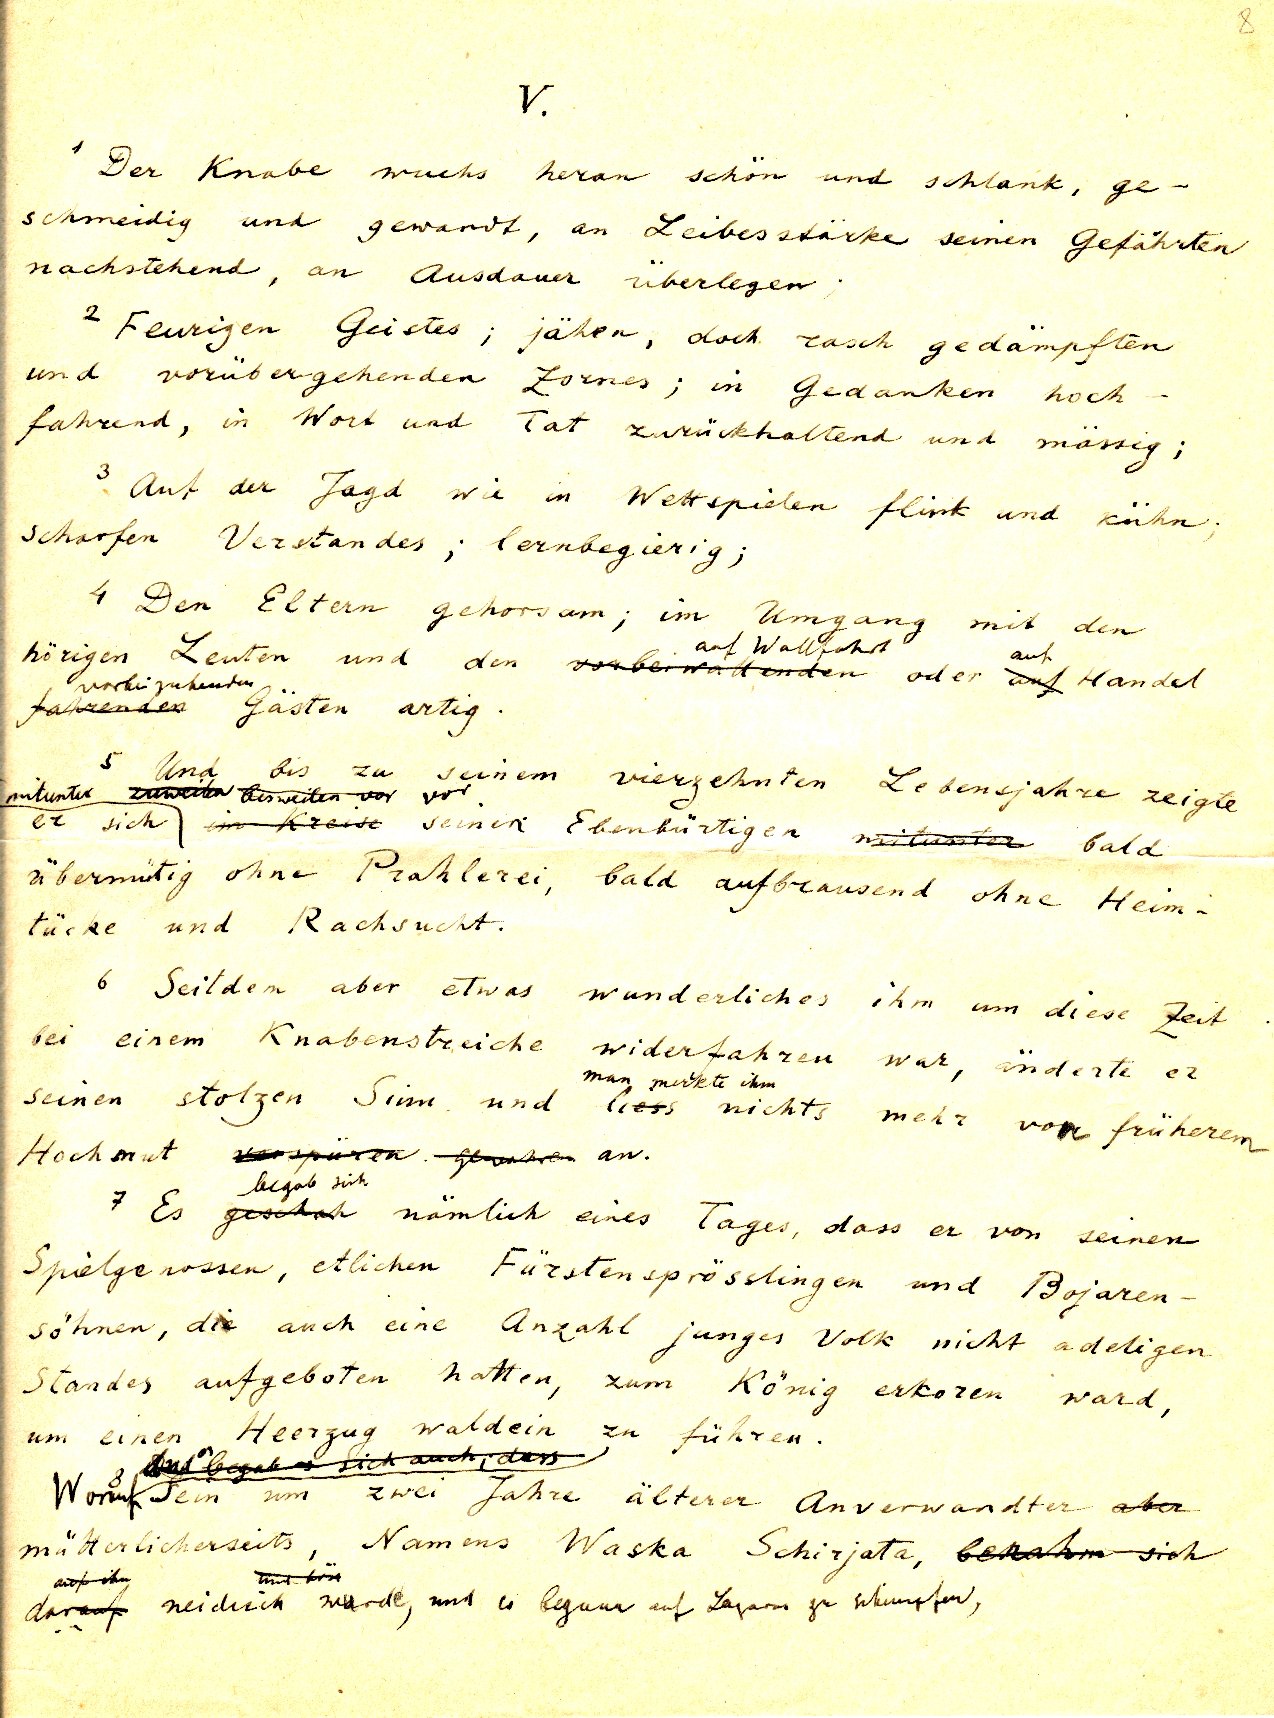 8
V.
1 Der Knabe wuchs heran schön und schlank, ge-
schmeidig und gewandt, an Leibesstärke seinen Gefährten
nachstehend, an Ausdauer überlegen;
2 Feurigen Geistes; jähen, doch rasch gedämpften
und vorübergehenden Zornes; in Gedanken hoch-
fahrend, in Wort und Tat zurückhaltend und mässig;
3 Auf der Jagd wie in Wettspielen flink und kühn;
scharfen Verstandes; lernbegierig;
4 Den Eltern gehorsam; im Umgang mit den
auf Wallfahrt auf
hörigen Leuten und den vorbeiwallenden oder auf Handel
vorbeiziehenden
fahrenden Gästen artig.
5 Und bis zu seinem vierzehnten Lebensjahre zeigte
mitunter zuweilen bisweilen vor vor
er sich im Kreise seiner Ebenbürtigen mitunter bald
übermütig ohne Prahlerei, bald aufbrausend ohne Heim-
tücke und Rachsucht.
6 Seitdem aber etwas wunderliches ihm um diese Zeit
bei einem Knabenstreiche widerfahren war, änderte er
man merkte ihm
seinen stolzen Sinn und liess nichts mehr von früherem
Hochmut verspüren. gewahren an.
begab sich
7 Es geschah nämlich eines Tages, dass er von seinen
Spielgenossen, etlichen Fürstensprösslingen und Bojaren-
söhnen, die auch eine Anzahl junges Volk nicht adeligen
Standes aufgeboten hatten, zum König erkoren ward,
um einen Heerzug waldein zu führen.
begab es sich auch, dass
8 Worauf Sein um zwei Jahre älterer Anverwandter aber
mütterlicherseits, Namens Waska Schirjata, benahm sich
auf ihn und bös
darauf neidisch wurde, und es begann auf Lazarus zu schimpfen,